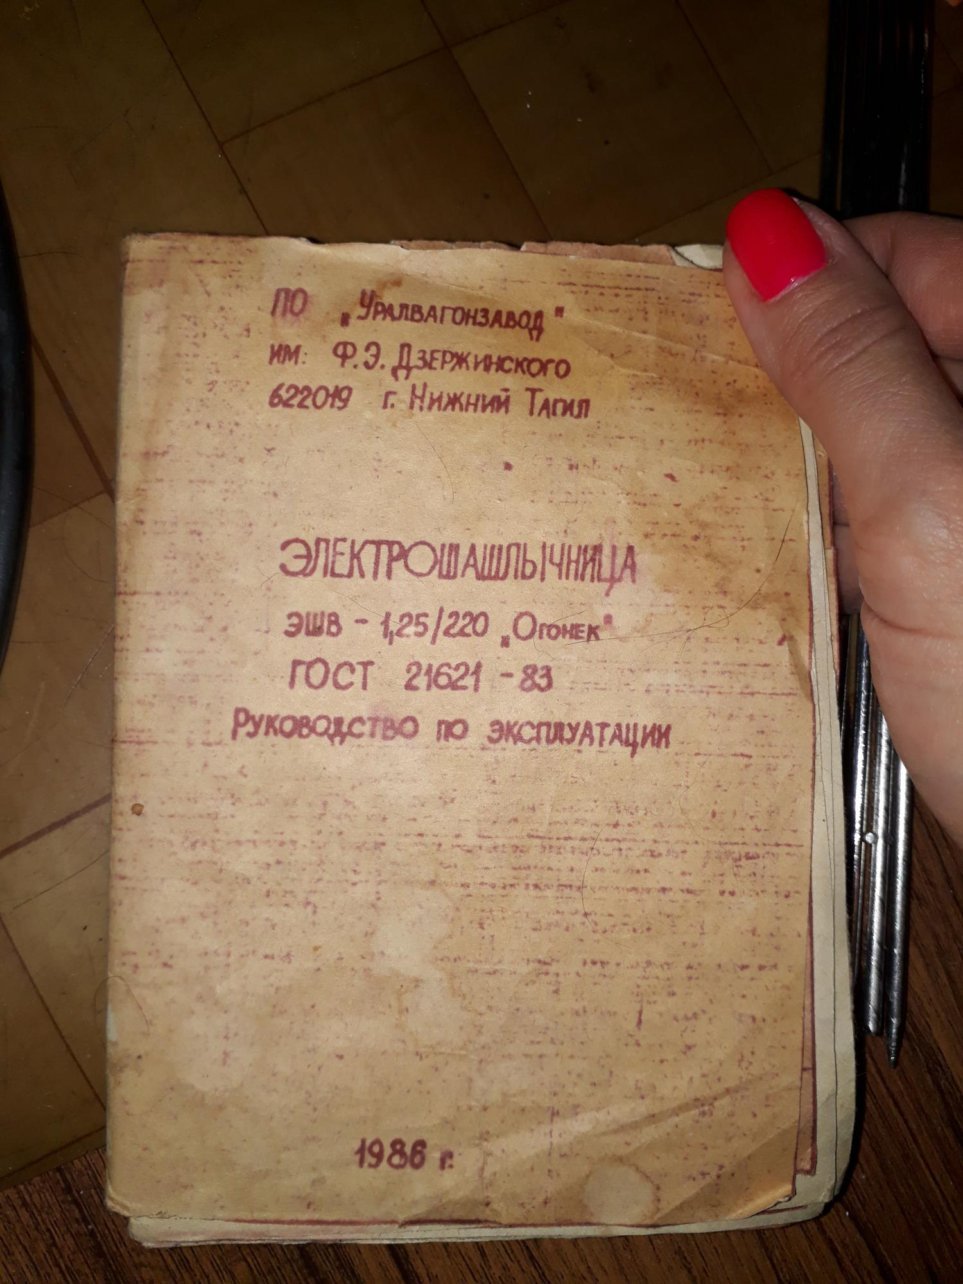 ПО „Уралвагонзавод"
им: Ф.Э. Дзержинского
622019 г. Нижний Тагил
ЭЛЕКТРОШАШЛЫЧНИЦА
ЭШВ - 1,25/220 „Огонек"
ГОСТ 21621 - 83
Руководство по эксплуатации
1986 г.